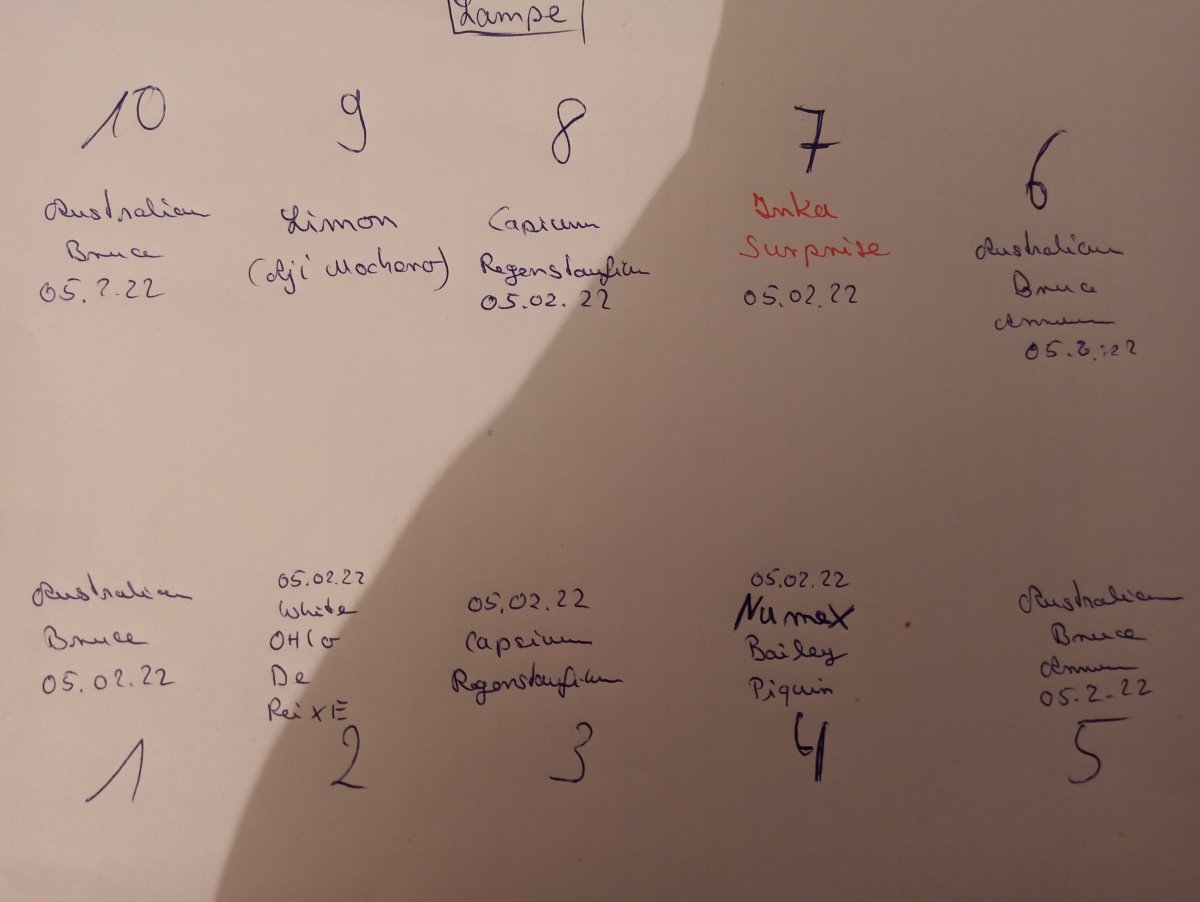 Lampe
10
Australian
Bruce
05.2.22
9
Limon
(Aji Mochero)
8
Capsium
Regenstaufium
05.02.22
7
Inka
Surprise
05.02.22
6
Australian
Bruce
Annum
05.2.22
Australian
Bruce
05.02.22
1
05.02.22
White
De
2
05.02.22
Capsium
Regenstaufium
3
05.02.22
Numex
Bailey
Piquin
4
Australian
Bruce
Annum
05.2.22
5